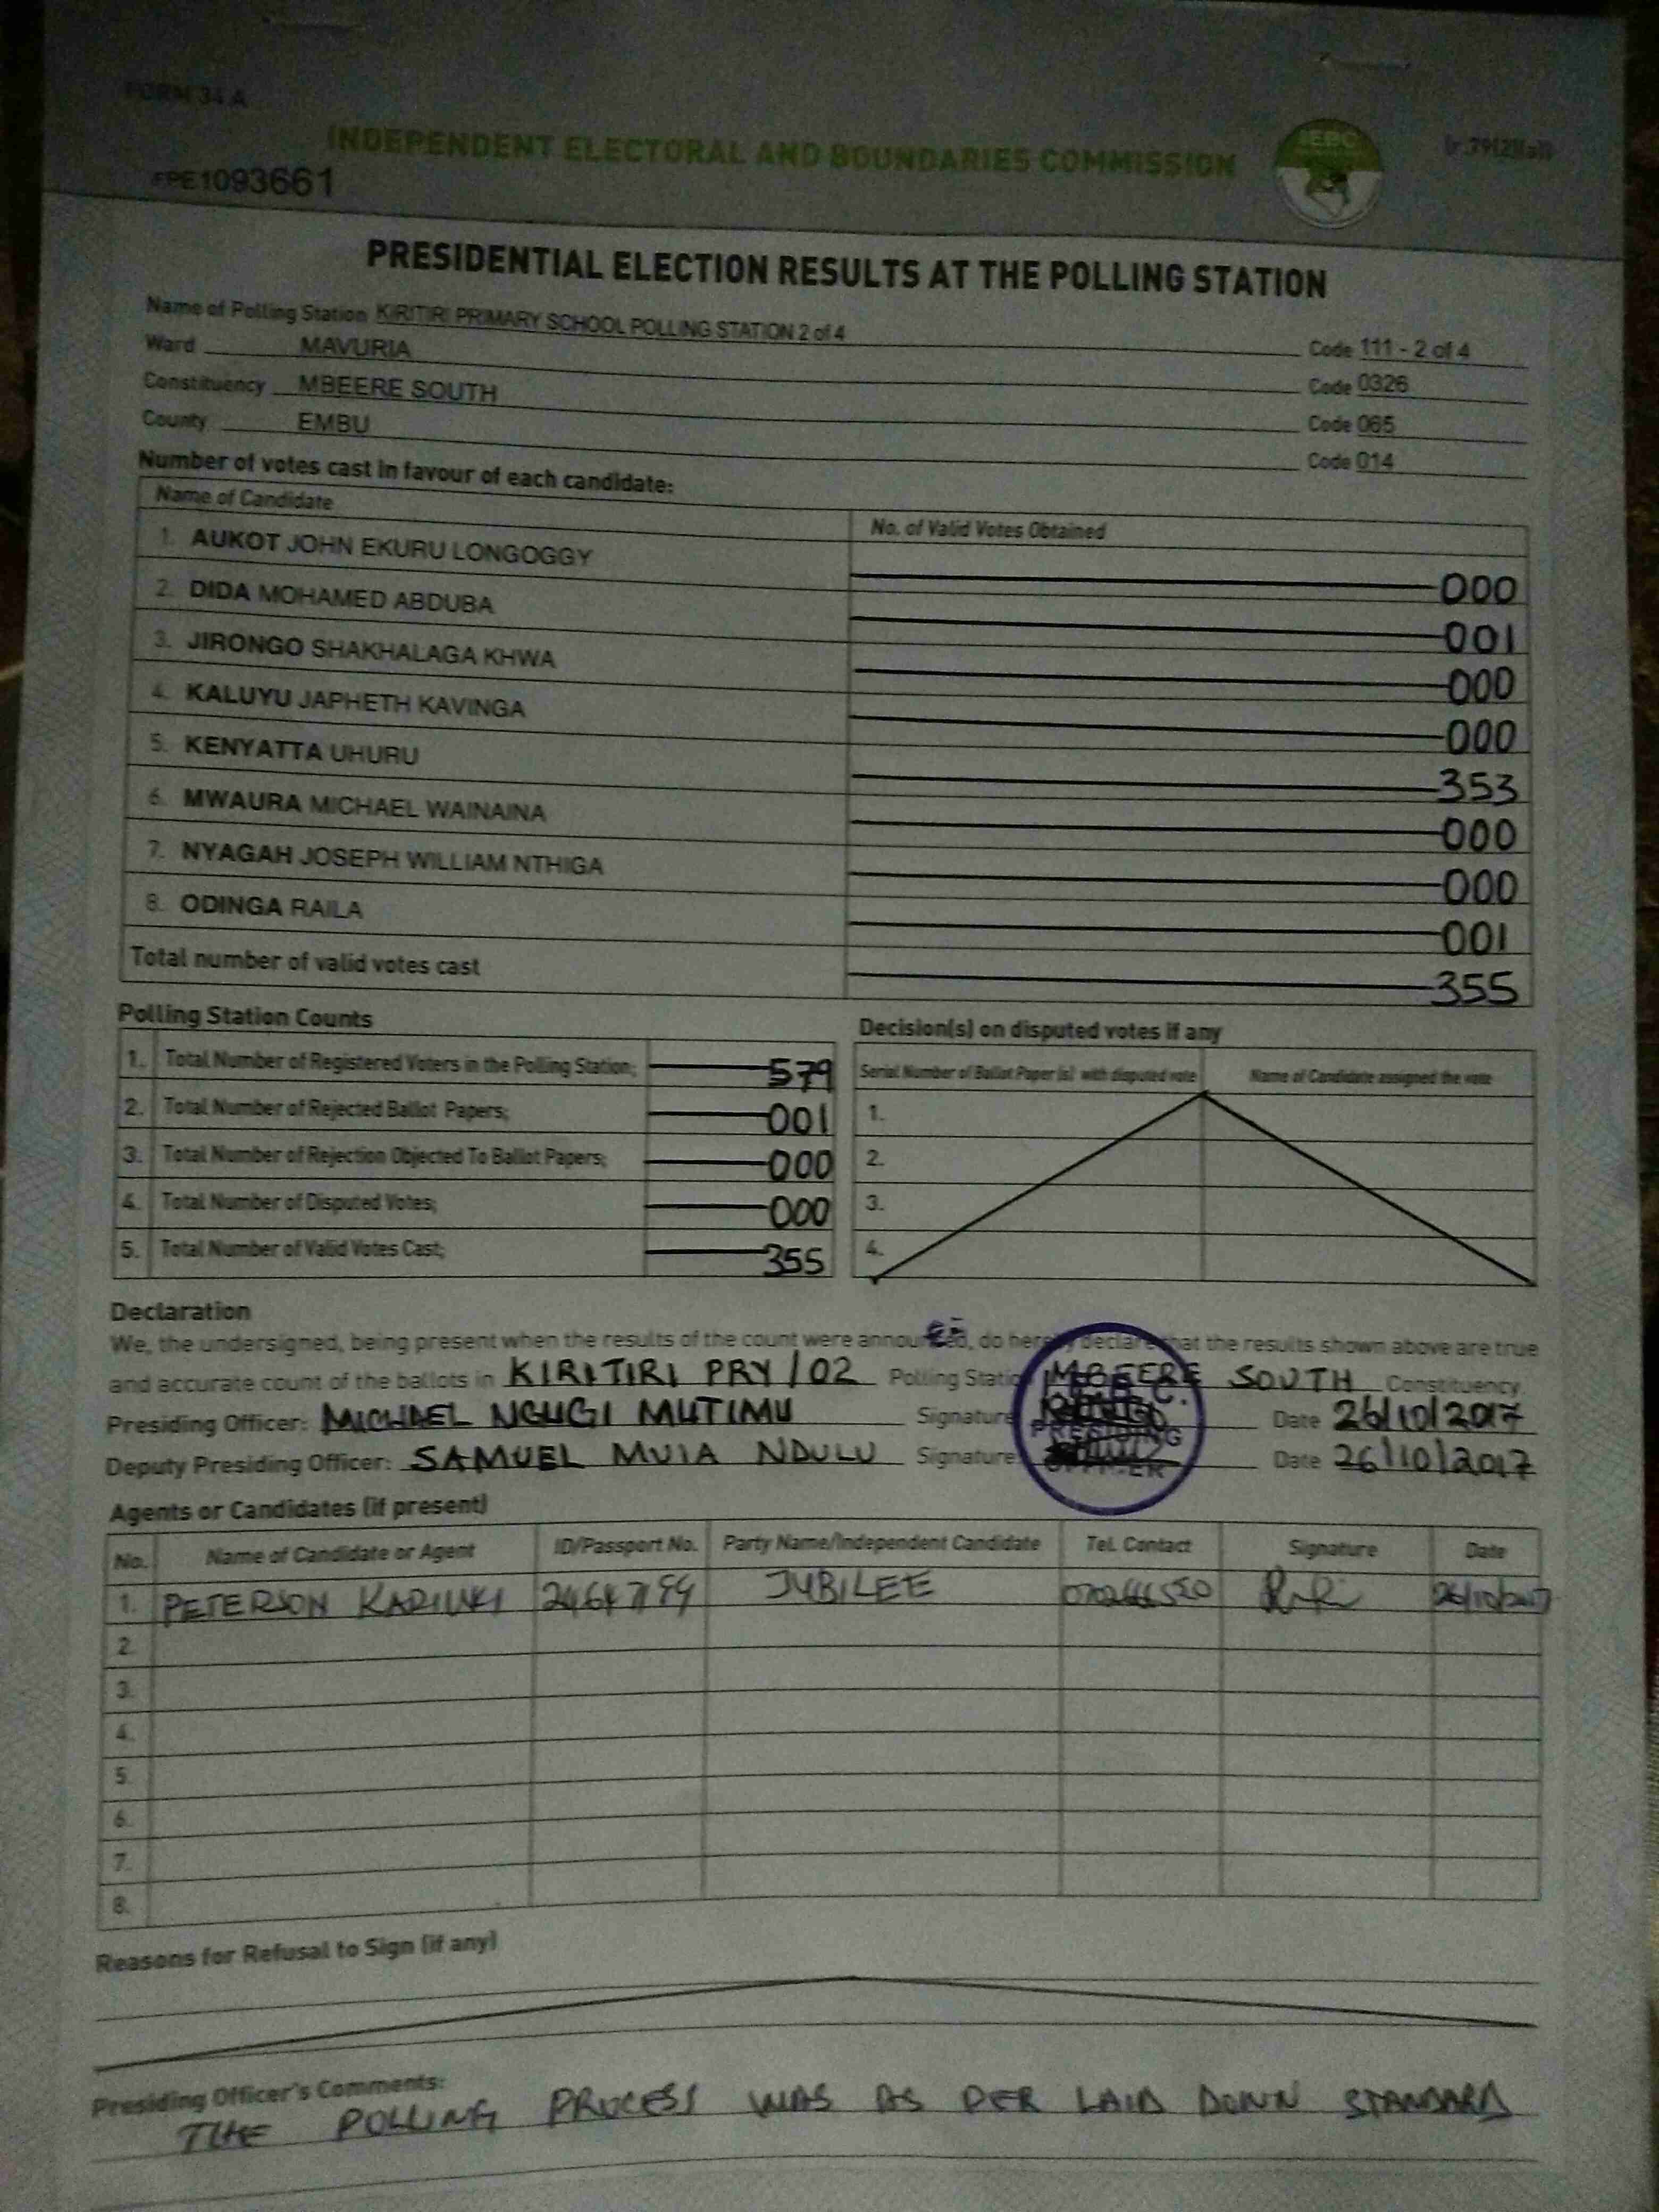 FORM 34 A
INDEPENDENT ELECTORAL AND BOUNDARIES COMMISSION
IEBC
(r.79(2)(a))
FPE1093661
PRESIDENTIAL ELECTION RESULTS AT THE POLLING STATION
Name of Polling Station KIRITIRI PRIMARY SCHOOL POLLING STATION 2 of 4 Code 111 - 2 of 4
Ward MAVURIA Code 0326
Constituency MBEERE SOUTH Code 065
County EMBU Code 014
Number of votes cast in favour of each candidate:
Name of Candidate No. of Valid Votes Obtained
1. AUKOT JOHN EKURU LONGOGGY 000
2. DIDA MOHAMED ABDUBA 001
3. JIRONGO SHAKHALAGA KHWA 000
4. KALUYU JAPHETH KAVINGA 000
5. KENYATTA UHURU 353
6. MWAURA MICHAEL WAINAINA 000
7. NYAGAH JOSEPH WILLIAM NTHIGA 000
8. ODINGA RAILA 001
Total number of valid votes cast 355
Polling Station Counts
1. Total Number of Registered Voters in the Polling Station; 579
2. Total Number of Rejected Ballot Papers; 001
3. Total Number of Rejection Objected To Ballot Papers; 000
4. Total Number of Disputed Votes; 000
5. Total Number of Valid Votes Cast; 355
Decision(s) on disputed votes if any
Serial Number of Ballot Paper (s) with disputed vote Name of Candidate assigned the vote
1.
2.
3.
4.
Declaration
We, the undersigned, being present when the results of the count were announced, do hereby declare that the results shown above are true
and accurate count of the ballots in KIRITIRI PRY / 02 Polling Station MBEERE SOUTH Constituency
Presiding Officer: MICHAEL NGUGI MUTIMU Signature Date 26/10/2017
Deputy Presiding Officer: SAMUEL MUIA NDULU Signature Date 26/10/2017
I.E.B.C.
PRESIDING
OFFICER
Agents or Candidates (if present)
No. Name of Candidate or Agent ID/Passport No. Party Name/Independent Candidate Tel. Contact Signature Date
1. PETERSON KARIUKI JUBILEE 26/10/2017
2.
3.
4.
5.
6.
7.
8.
Reasons for Refusal to Sign (if any)
Presiding Officer's Comments:
THE POLLING PROCESS WAS AS PER LAID DOWN STANDARD